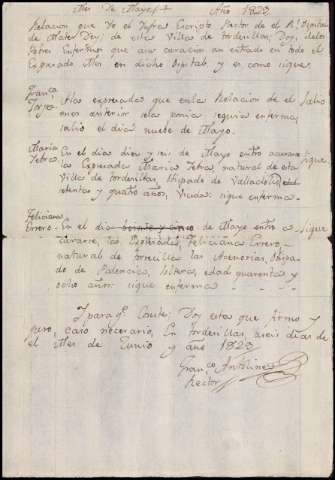 Mes de Mayo + Año 1823
Relacion que Yo el Infras Cripto, Rector del R. Ospital
de Mater Dey; de esta Villa de tordesillas; Doy, delos
Pobres Enfermos que a su curacion an entrado en todo el
Expresado Mes en dicho Ospital y es como sigue.
Franca
La expresada que en la Relacion de el Salio
mes anterior resta seguia enferma,
salio el dia nuebe de Mayo.
Maria En el dia diez y seis de Mayo entro a curarse Sigue
Tetra. la Expresada Maria Tetra, natural de esta
Villa de tordesillas, Obispado de Valladolid, edad
setenta y quatro años, Viuda, sigue enferma.
Feliciana
Errero. En el dia beinte y cinco de Mayo entro a Sigue
curarse, la Expresada, Feliciana Errero,
natural de torrecilla las Obispa
do de Palencia, soltera, edad quarenta y
ocho años: sigue enferma
Y para q. Conste; Doy esta que firmo y
juro, caso necesario, En tordesillas, a seis dias de
el Mes de Junio y año 1823
Franco Antolinez
Rector